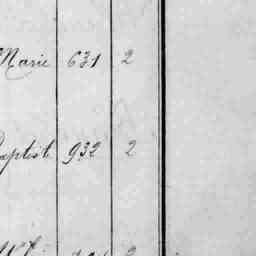 Marie 631 2
Baptist 932 2
2